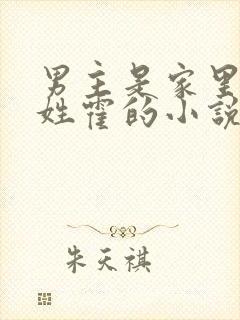 男主是家里
姓霍的小説
朱天祺